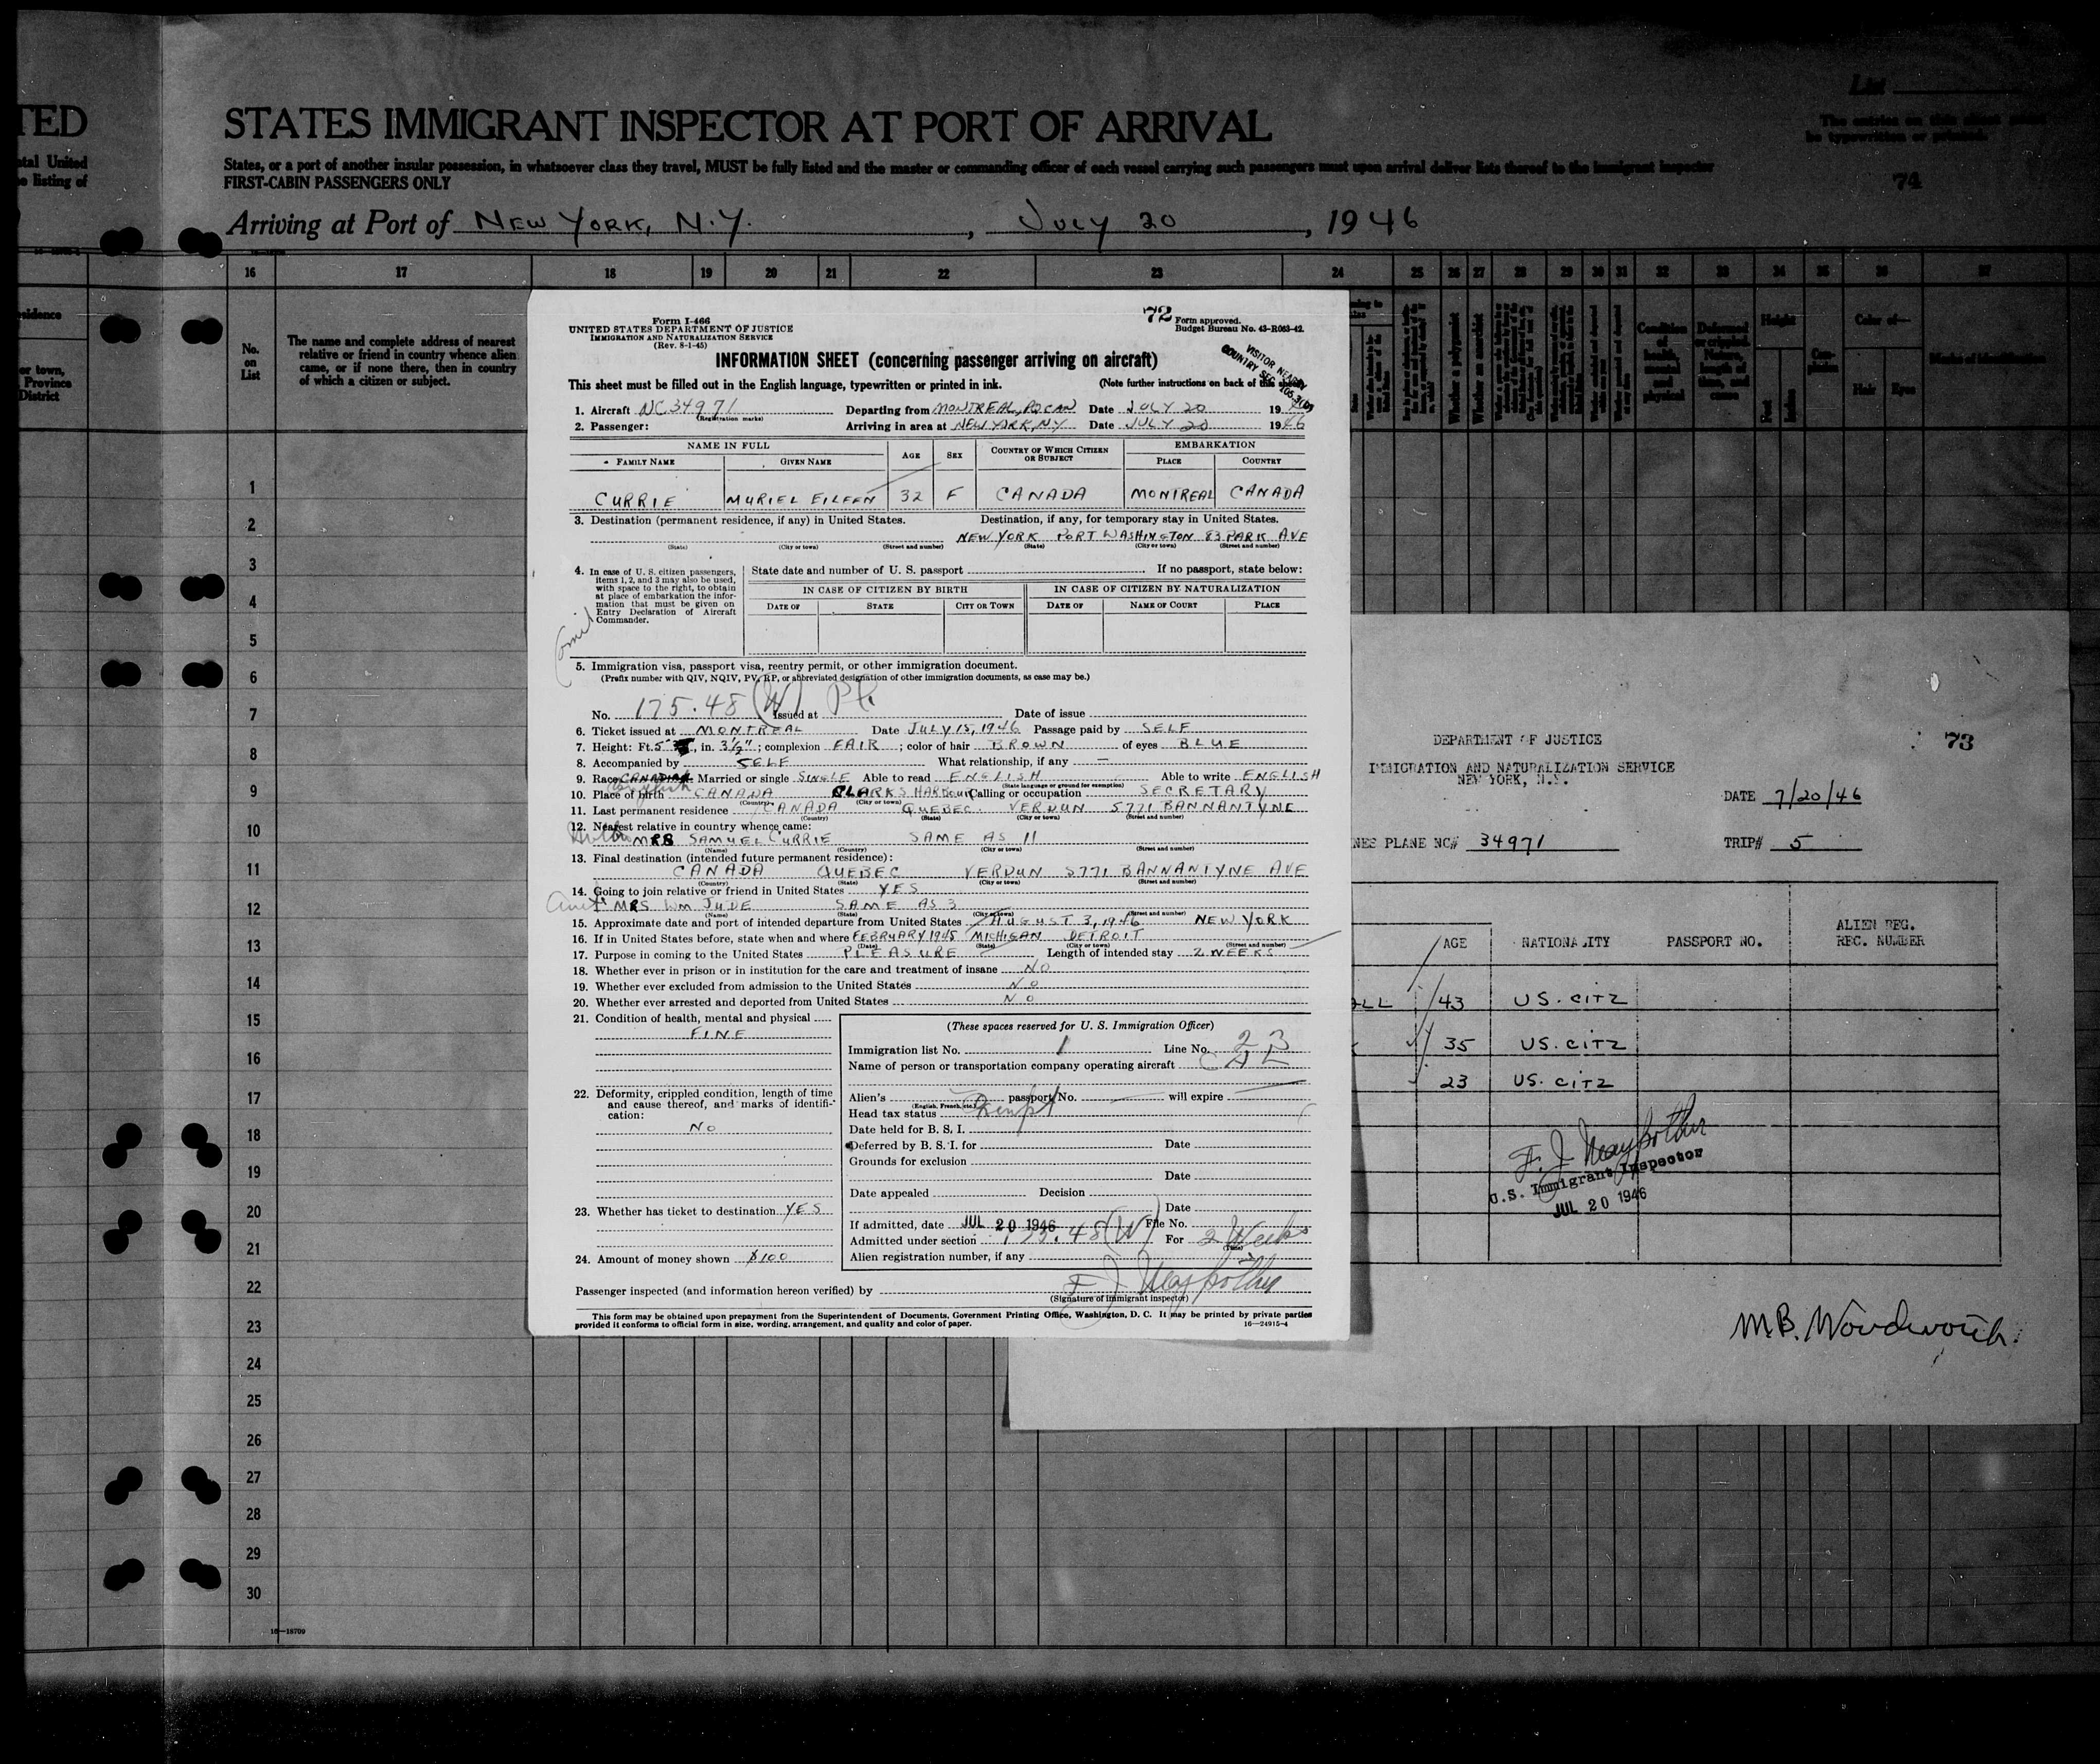 TED
STATES IMMIGRANT INSPECTOR AT PORT OF ARRIVAL
List
States, or a port of another insular possession, in whatsoever class they travel, MUST be fully listed and the master or commanding officer of each vessel carrying such passengers must upon arrival deliver lists thereof to the immigrant inspector
FIRST-CABIN PASSENGERS ONLY
74
Arriving at Port of NEW YORK, N.Y. , JULY 20 , 1946
16 17 18 19 20 21 22 23 24 25 26 27 28 29 30 31 32 33 34 35 36 37
No. on List
The name and complete address of nearest relative or friend in country whence alien came, or if none there, then in country of which a citizen or subject.
or town,
Province
District
1
2
3
4
5
6
7
8
9
10
11
12
13
14
15
16
17
18
19
20
21
22
23
24
25
26
27
28
29
30
16—18709
72
Form I-466
UNITED STATES DEPARTMENT OF JUSTICE
IMMIGRATION AND NATURALIZATION SERVICE
(Rev. 8-1-45)
Form approved.
Budget Bureau No. 43-R063-42.
INFORMATION SHEET (concerning passenger arriving on aircraft)
This sheet must be filled out in the English language, typewritten or printed in ink. (Note further instructions on back of this sheet)
1. Aircraft NC34971 (Registration marks) Departing from MONTREAL, PQ CAN Date JULY 20 19
2. Passenger: Arriving in area at NEW YORK, NY Date JULY 20 1946
NAME IN FULL AGE SEX COUNTRY OF WHICH CITIZEN OR SUBJECT EMBARKATION
FAMILY NAME GIVEN NAME PLACE COUNTRY
CURRIE MURIEL EILEEN 32 F CANADA MONTREAL CANADA
3. Destination (permanent residence, if any) in United States. Destination, if any, for temporary stay in United States.
NEW YORK PORT WASHINGTON 83 PARK AVE
(State) (City or town) (Street and number) (State) (City or town) (Street and number)
4. In case of U. S. citizen passengers, items 1, 2, and 3 may also be used, with space to the right, to obtain at place of embarkation the information that must be given on Entry Declaration of Aircraft Commander.
State date and number of U. S. passport If no passport, state below:
IN CASE OF CITIZEN BY BIRTH IN CASE OF CITIZEN BY NATURALIZATION
DATE OF STATE CITY OR TOWN DATE OF NAME OF COURT PLACE
5. Immigration visa, passport visa, reentry permit, or other immigration document.
(Prefix number with QIV, NQIV, PV, RP, or abbreviated designation of other immigration documents, as case may be.)
No. 175.48 (W) Issued at Date of issue
6. Ticket issued at MONTREAL Date JULY 15, 1946 Passage paid by SELF
7. Height: Ft. 5, in. 3½"; complexion FAIR; color of hair BROWN of eyes BLUE
8. Accompanied by SELF What relationship, if any —
9. Race CANADIAN English Married or single SINGLE Able to read ENGLISH Able to write ENGLISH
(State language or ground for exemption)
10. Place of birth CANADA CLARKS HARBOUR Calling or occupation SECRETARY
(Country) (City or town)
11. Last permanent residence CANADA QUEBEC. VERDUN 5771 BANNANTYNE
(Country) (State) (City or town) (Street and number)
12. Nearest relative in country whence came:
MRS SAMUEL CURRIE SAME AS 11
(Name) (Country) (City or town) (Street and number)
13. Final destination (intended future permanent residence):
CANADA QUEBEC VERDUN 5771 BANNANTYNE AVE
(Country) (State) (City or town) (Street and number)
14. Going to join relative or friend in United States YES
Aunt MRS WM JUDE SAME AS 3
(Name) (State) (City or town) (Street and number)
15. Approximate date and port of intended departure from United States AUGUST 3, 1946 NEW YORK
16. If in United States before, state when and where FEBRUARY 1945 MICHIGAN DETROIT
(Date) (State) (City or town) (Street and number)
17. Purpose in coming to the United States PLEASURE Length of intended stay 2 WEEKS
18. Whether ever in prison or in institution for the care and treatment of insane NO
19. Whether ever excluded from admission to the United States NO
20. Whether ever arrested and deported from United States NO
21. Condition of health, mental and physical
FINE
22. Deformity, crippled condition, length of time and cause thereof, and marks of identification:
NO
23. Whether has ticket to destination YES
24. Amount of money shown $100
(These spaces reserved for U. S. Immigration Officer)
Immigration list No. 1 Line No. 23
Name of person or transportation company operating aircraft CAL
Alien's passport No. — will expire —
(English, French, etc.)
Head tax status Exempt
Date held for B. S. I.
Deferred by B. S. I. for Date
Grounds for exclusion
Date
Date appealed Decision
Date
If admitted, date JUL 20 1946 File No.
Admitted under section 175.48 (W) For 2 Weeks
(Time)
Alien registration number, if any
Passenger inspected (and information hereon verified) by
(Signature of immigrant inspector)
This form may be obtained upon prepayment from the Superintendent of Documents, Government Printing Office, Washington, D. C. It may be printed by private parties
provided it conforms to official form in size, wording, arrangement, and quality and color of paper. 16—24915-4
73
DEPARTMENT OF JUSTICE
IMMIGRATION AND NATURALIZATION SERVICE
NEW YORK, N.Y.
DATE 7/20/46
NES PLANE NC# 34971 TRIP# 5
AGE NATIONALITY PASSPORT NO. ALIEN REG. REC. NUMBER
43 US. CITZ
35 US. CITZ
23 US. CITZ
U.S. Immigrant Inspector
JUL 20 1946
M.B. Woodworth